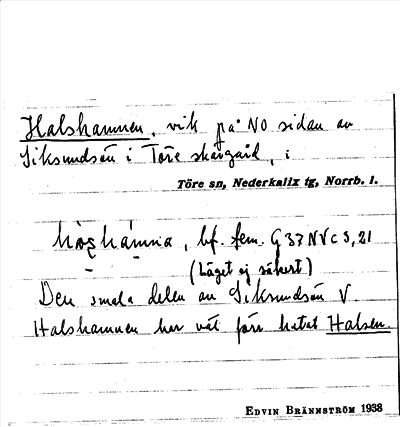 Halshamnen, vik på NO sidan av
Siksundsön i Töre skärgård, i
Töre sn, Nederkalix tg, Norrb. l.
bf. fem. G 37 NV c 3, 21
(Läget ej säkert)
Den smala delen av Siksundsön V
Halshamnen har väl förr hetat Halsen.
EDVIN BRÄNNSTRÖM 1938